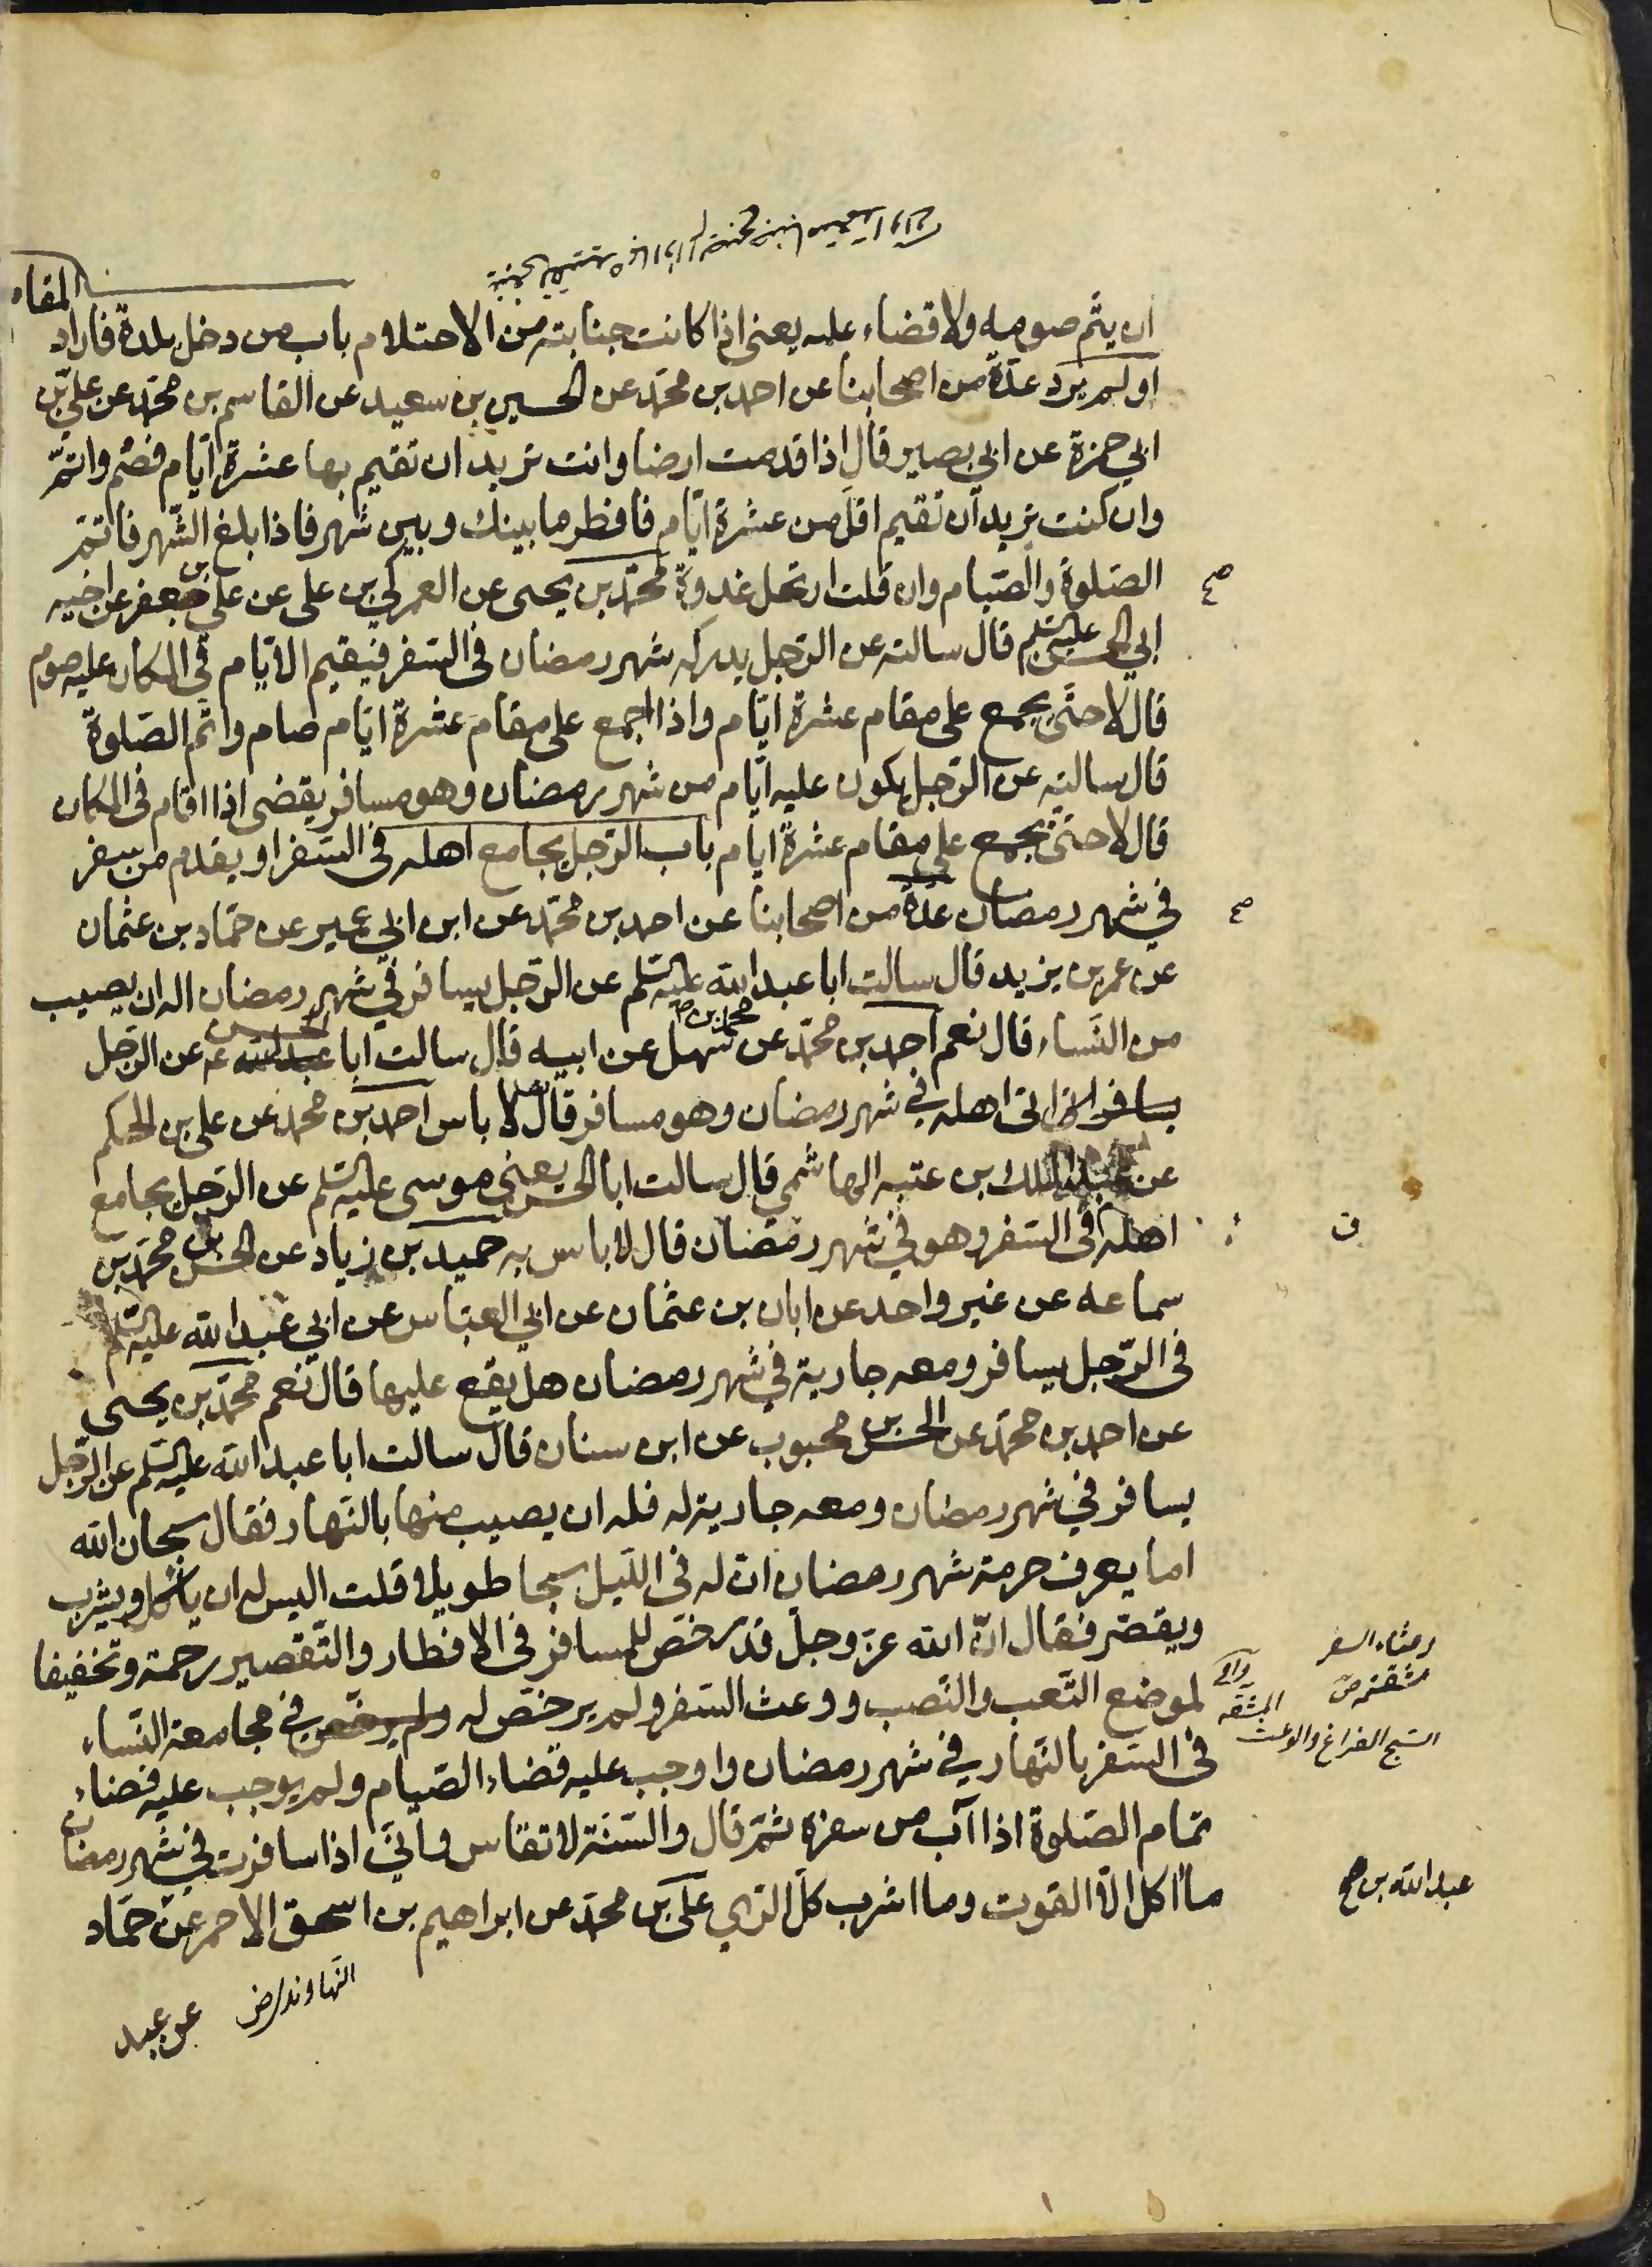 المقام
ان يتم صومه ولا قضاء عليه يعنى اذا كانت جنابته من الاحتلام باب من دخل بلدة فاراد
او لم يرد عدّة من اصحابنا عن احمد بن محمّد عن الحسين بن سعيد عن القاسم بن محمّد عن علي بن
ابي حمزة عن ابي بصير قال اذا قدمت ارضا وانت تريد ان تقيم بها عشرة ايّام فصم واتمّ
وان كنت تريد ان تقيم اقل من عشرة ايّام فافطر ما بينك وبين شهر فاذا بلغ الشّهر فاتمّ
الصّلوة والصّيام وان قلت ارتحل غدوة محمّد بن يحيى عن العمركي بن على عن علي بن جعفر عن اخيه
ابي الحسن عليه السلم قال سالته عن الرّجل يدركه شهر رمضان فى السّفر فيقيم الايّام في المكان عليه صوم
قال لا حتّى يجمع على مقام عشرة ايّام واذا اجمع على مقام عشرة ايّام صام واتم الصّلوة
قال سالته عن الرّجل يكون عليه ايّام من شهر رمضان وهو مسافر يقضى اذا اقام فى المكان
قال لا حتّى يجمع على مقام عشرة ايام باب الرّجل يجامع اهله فى السّفر او يقدم من سفر
في شهر رمضان عدّة من اصحابنا عن احمد بن محمّد عن ابن ابي عمير عن حمّاد بن عثمان
عن عمر بن يزيد قال سالت ابا عبد الله عليه السلم عن الرّجل يسافر في شهر رمضان اله ان يصيب
من النّساء قال نعم احمد بن محمّد عن محمد بن سهل عن ابيه قال سالت ابا عبد الله الحسن عن الرّجل
يسافر اتى اهله في شهر رمضان وهو مسافر قال لا باس احمد بن محمّد عن علي بن الحكم
عن عبد الملك بن عتبه الهاشمي قال سالت ابا الحسن يعني موسى عليه السلم عن الرّجل يجامع
اهله فى السّفر وهو في شهر رمضان قال لا باس به حميد بن زياد عن الحسن بن محمّد بن
سماعه عن غير واحد عن ابان بن عثمان عن ابي العبّاس عن ابي عبد الله عليه السلم
فى الرّجل يسافر ومعه جارية في شهر رمضان هل يقع عليها قال نعم محمّد بن يحيى
عن احمد بن محمّد عن الحسن بن محبوب عن ابن سنان قال سالت ابا عبد الله عليه السلم عن الرّجل
يسافر في شهر رمضان ومعه جارية له فله ان يصيب منها بالنّهار فقال سبحان الله
اما يعرف حرمة شهر رمضان ان له فى اللّيل سبحا طويلا قلت اليس له ان ياكل ويشرب
ويقصّر فقال انّ الله عزّ وجلّ قد رخّص للمسافر فى الافطار والتّقصير رحمة وتخفيفا
لموضع التّعب والنّصب ووعث السّفر ولم يرخّص له ولم يرخّص في مجامعة النّساء
فى السّفر بالنّهار في شهر رمضان واوجب عليه قضاء الصّيام ولم يوجب عليه قضاء
تمام الصّلوة اذا آب من سفره ثمّ قال والسّنّة لا تقاس وانّي اذا سافرت في شهر رمضان
ما اكل الّا القوت وما اشرب كلّ الرّي علي بن محمّد عن ابراهيم بن اسحق الاحمر عن حمّاد
النّهاوندي
عن عبد
صح
صح
ن
السفر
مشقته ص
السّبح الفراغ والوعث المشقّه
عبد الله بن صح